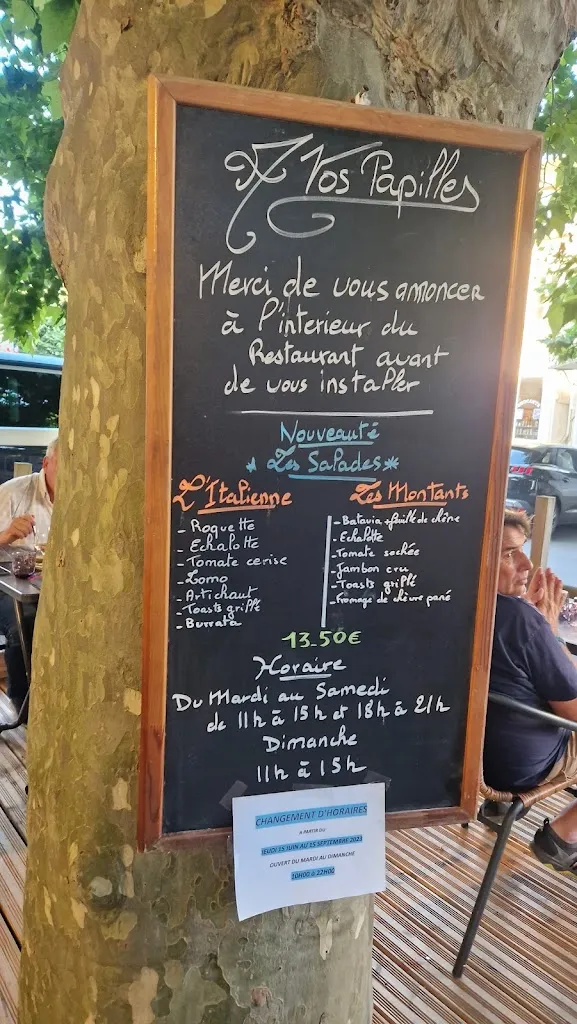 A Vos Papilles
Merci de vous annoncer
à l'interieur du
Restaurant avant
de vous installer
Nouveauté
* Les Salades *
L'Italienne
- Roquette
- Echalotte
- Tomate cerise
- Lomo
- Artichaut
- Toasts grillé
- Burrata
Les Montants
- Batavia + feuille de chêne
- Echalotte
- Tomate sechée
- Jambon cru
- Toasts grillé
- Fromage de chèvre pané
13.50€
Horaire
Du Mardi au Samedi
de 11h à 15h et 18h à 21h
Dimanche
11h à 15h
CHANGEMENT D'HORAIRES
A PARTIR DU
JEUDI 15 JUIN AU 15 SEPTEMBRE 2023
OUVERT DU MARDI AU DIMANCHE
10H00 à 22H00